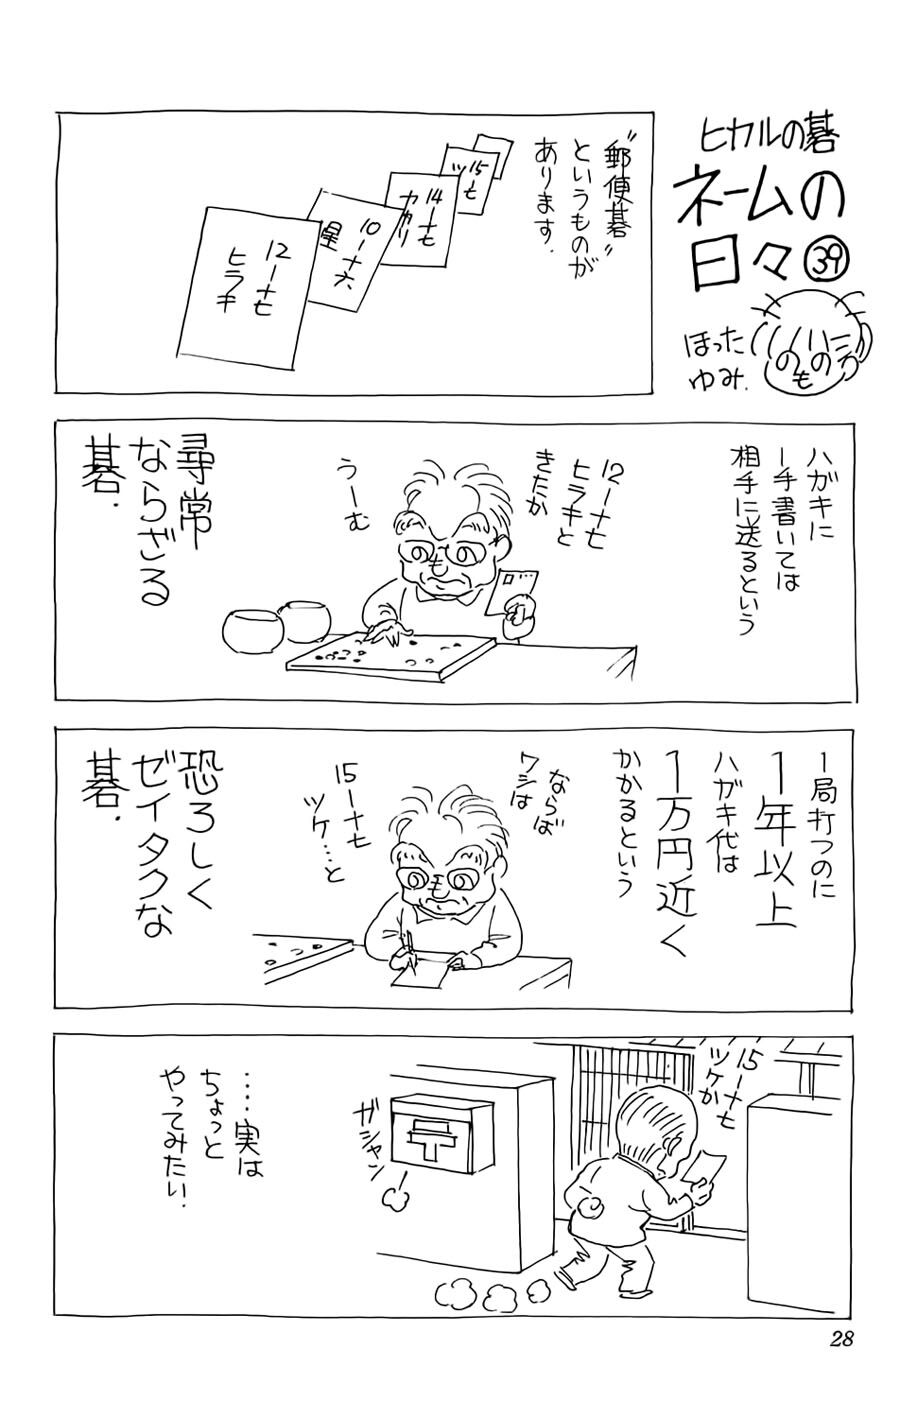 ヒカルの碁
ネームの
日々㊴
ほった
ゆみ.
"郵便碁"
というものが
あります.
15-七
ツ
14-七
カカリ
10-十六
星
12-十七
ヒラキ
ハガキに
一手書いては
相手に送るという
12-十七
ヒラキと
きたか
うーむ
尋常
ならざる
碁.
一局打つのに
1年以上
ハガキ代は
1万円近く
かかるという
ならば
ワシは
15-十七
ツケ…と
恐ろしく
ゼイタクな
碁.
15-十七
ツケか
ガシャン
……実は
ちょっと
やってみたい.
28